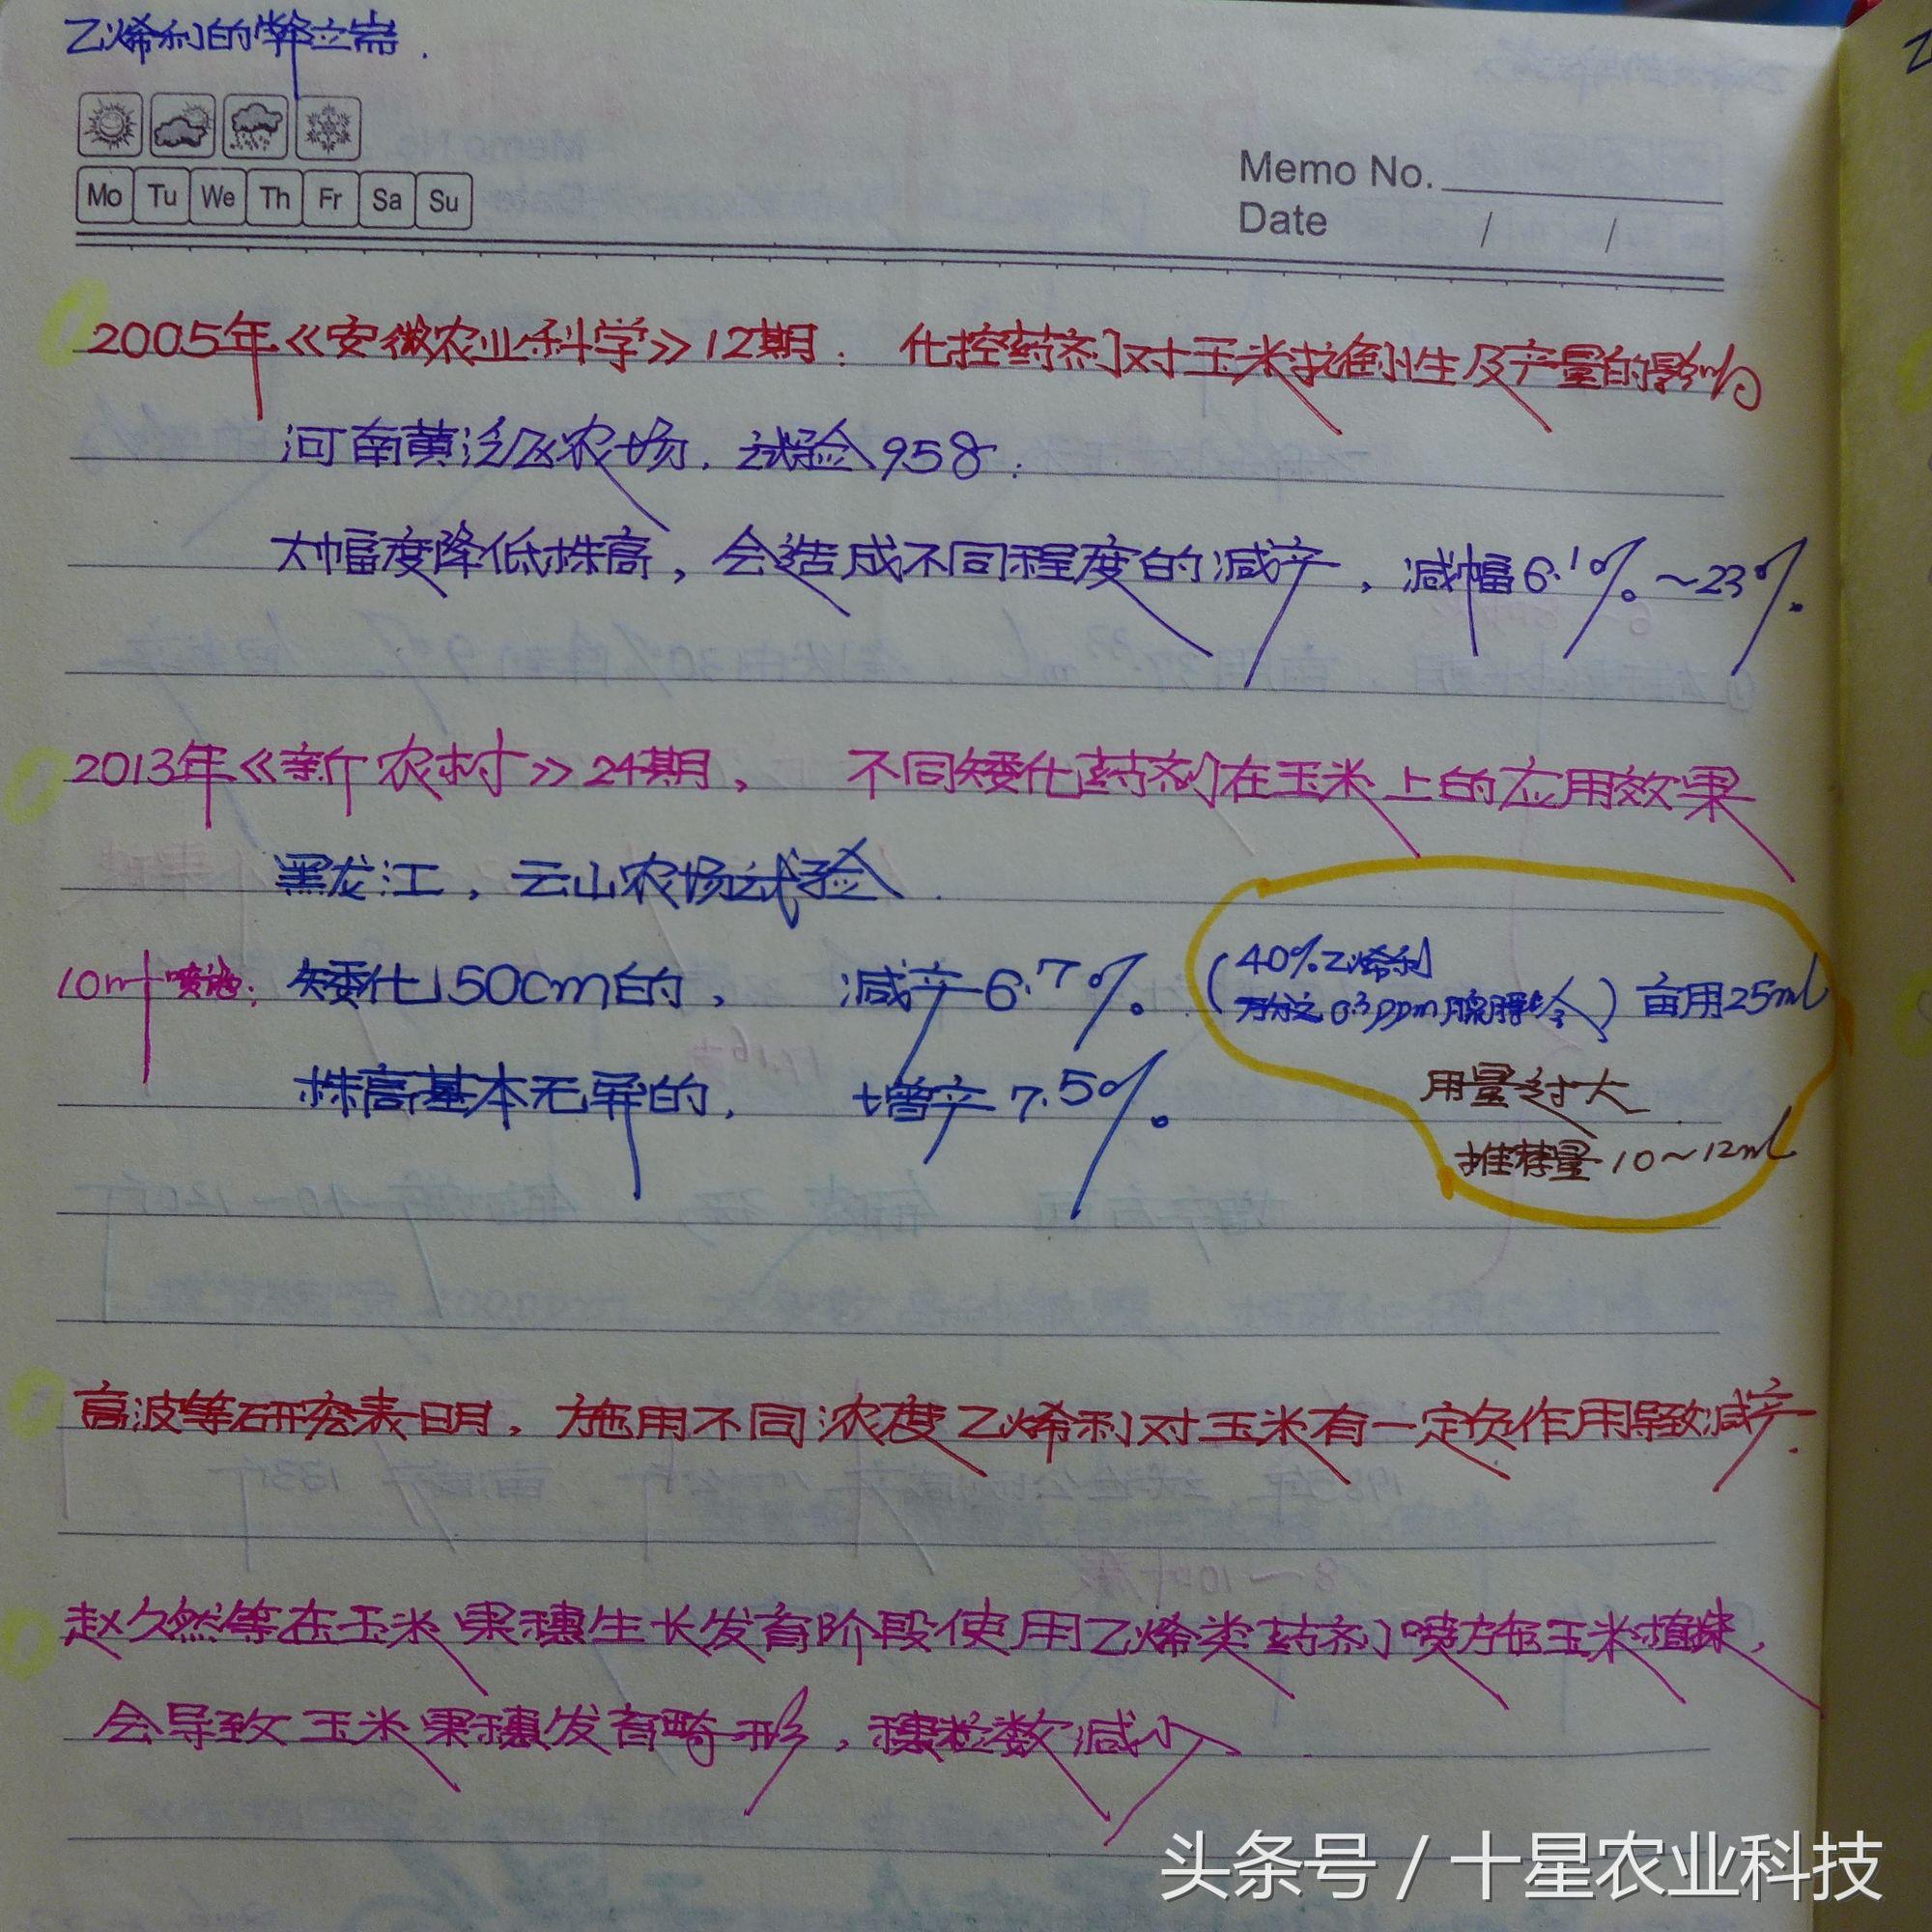 乙烯利的弊端.
Memo No.
Mo Tu We Th Fr Sa Su
Date / /
2005年《安徽农业科学》12期: 化控药剂对玉米抗倒性及产量的影响
河南黄泛区农场. 试验958:
大幅度降低株高, 会造成不同程度的减产, 减幅6.1%~23%.
2013年《新农村》24期, 不同矮化药剂在玉米上的应用效果
黑龙江, 云山农场试验.
10叶喷施: 矮化150cm的, 减产6.7%. (40%乙烯利
0.3ppm 胺鲜) 亩用25ml
用量过大
株高基本无异的, 增产7.5%.
推荐量10~12ml
高波等研究表明, 施用不同浓度乙烯利对玉米有一定负作用导致减产.
赵久然等在玉米果穗生长发育阶段使用乙烯类药剂喷施玉米植株,
会导致玉米果穗发育畸形, 穗粒数减少
头条号 / 十星农业科技